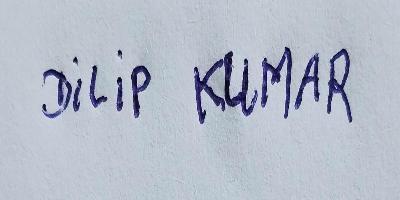 DiLiP KUMAR